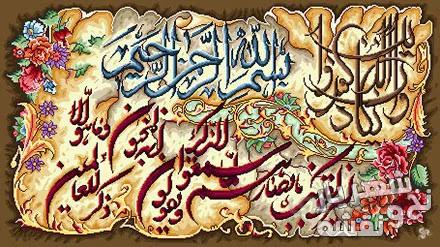 بسم الله الرحمن الرحیم
وان یکاد الذین کفروا
لیزلقونک بابصارهم لما سمعوا الذکر ویقولون انه لمجنون وما هو الا ذکر للعالمین
شهریار
نخ و نقشه